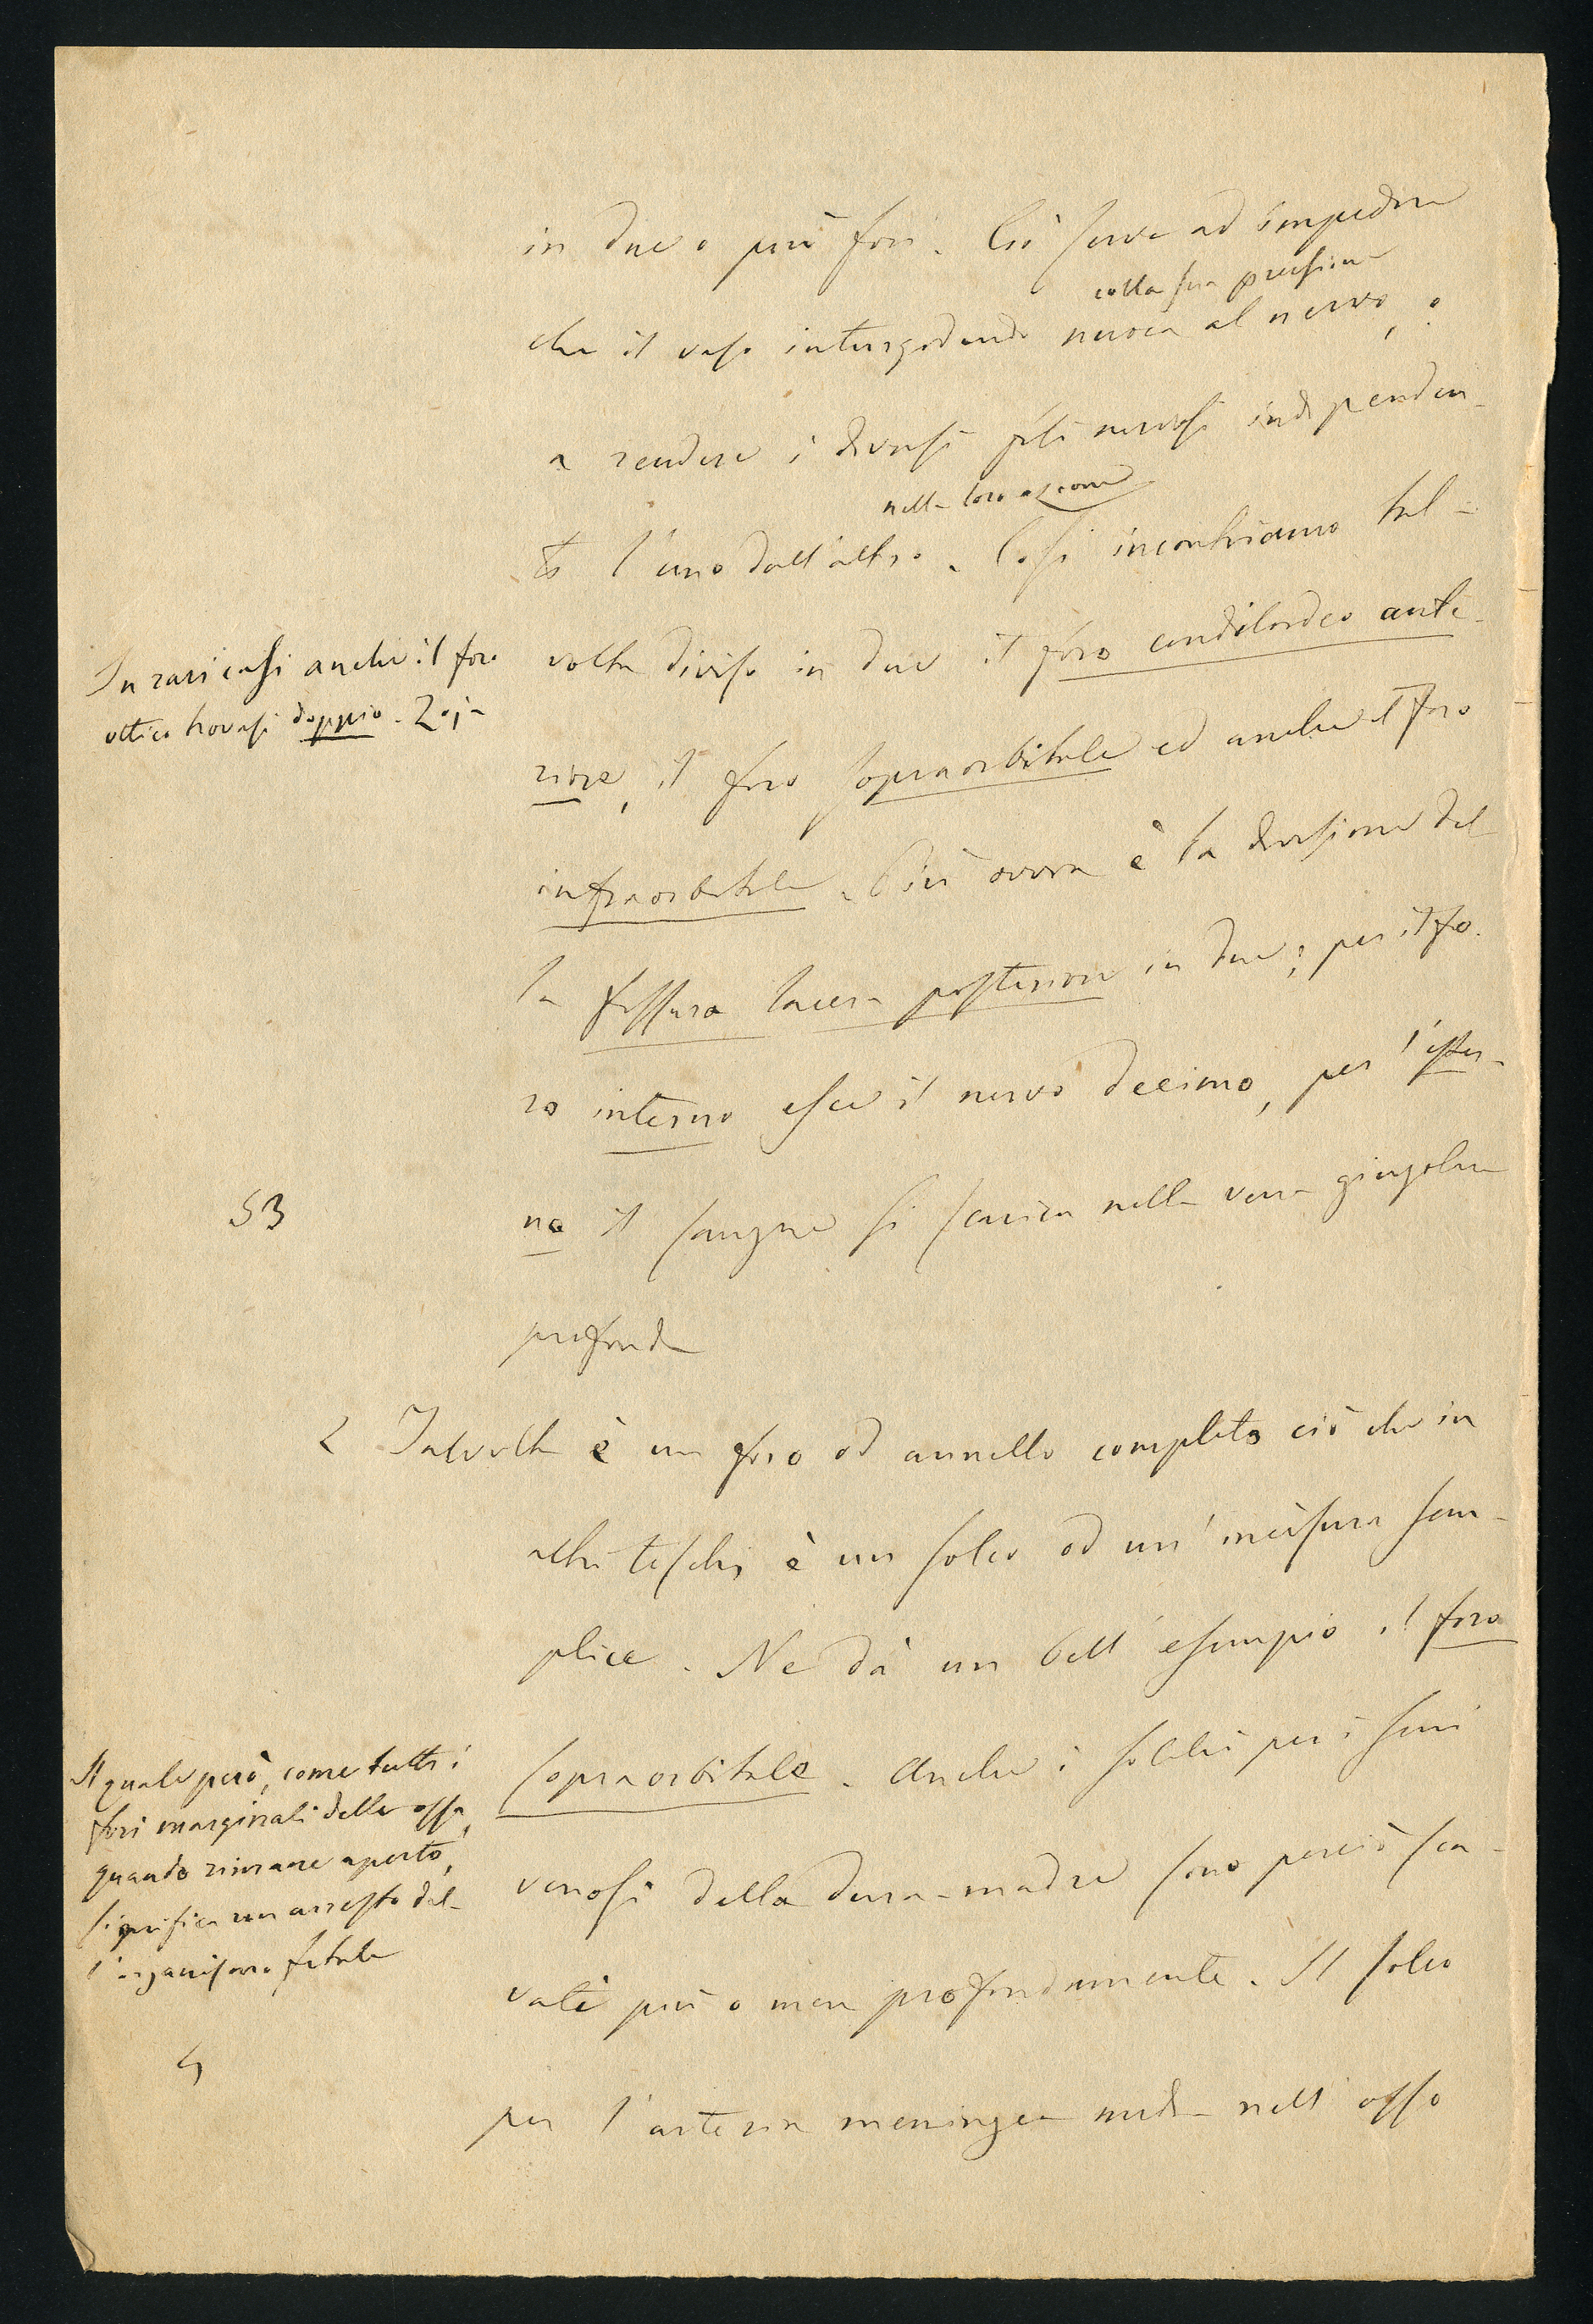 in due o più fori. Ciò serve ad impedire
colla sua pressione
che il vaso inturgidendo nuoca al nervo, o
a rendere i diversi fili nervosi independen-
nella loro azione
ti l'uno dall'altro. Così incontriamo tal-
volta diviso in due il foro condiloideo ante-
riore, il foro sopraorbitale ed anche il foro
infraorbitale. Più ovvia è la divisione del-
la fessura lacera posteriore in due; per il fo-
ro interno esce il nervo decimo, per l'ester-
no il sangue si scarica nella vena giugolare
profonda
In rari casi anche il foro
ottico trovasi doppio. Zoja
53
2 Talvolta è un foro od annello completo ciò che in
altri teschi è un solco od un'incisura sem-
plice. Ne dà un bell'esempio il foro
sopraorbitale. Anche i solchi per i seni
venosi della dura-madre sono perciò sca-
vati più o men profondamente. Il solco
per l'arteria meningea media nell'osso
Il quale però, come tutti i
fori marginali delle ossa,
quando rimane aperto,
significa un arresto del-
l'organismo fetale